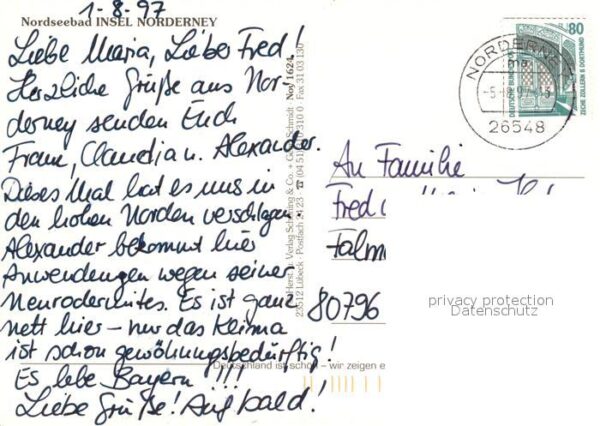 1-8-97
Nordseebad INSEL NORDERNEY
Liebe Maria, Lieber Fred!
Herzliche Grüße aus Nor-
derney senden Euch
Franz, Claudia u. Alexander.
Dieses Mal hat es uns in
den hohen Norden verschlagen.
Alexander bekommt hier
Anwendungen wegen seiner
Neurodermites. Es ist ganz
nett hier – nur das Klima
ist schon gewöhnungsbedürftig!
Es lebe Bayern!!!
Liebe Grüße! Auf bald!
Deutschland ist schön – wir zeigen e
Herst. u. Verlag Schöning & Co. + Gebr. Schmidt Noy 1624
23512 Lübeck · Postfach 23 ☎ (04 51) 310 0 Fax 31 03 130
NORDERNEY
26548
80
DEUTSCHE BUNDESPOST
ZECHE ZOLLERN II DORTMUND
An Familie
Fred
80796
privacy protection
Datenschutz